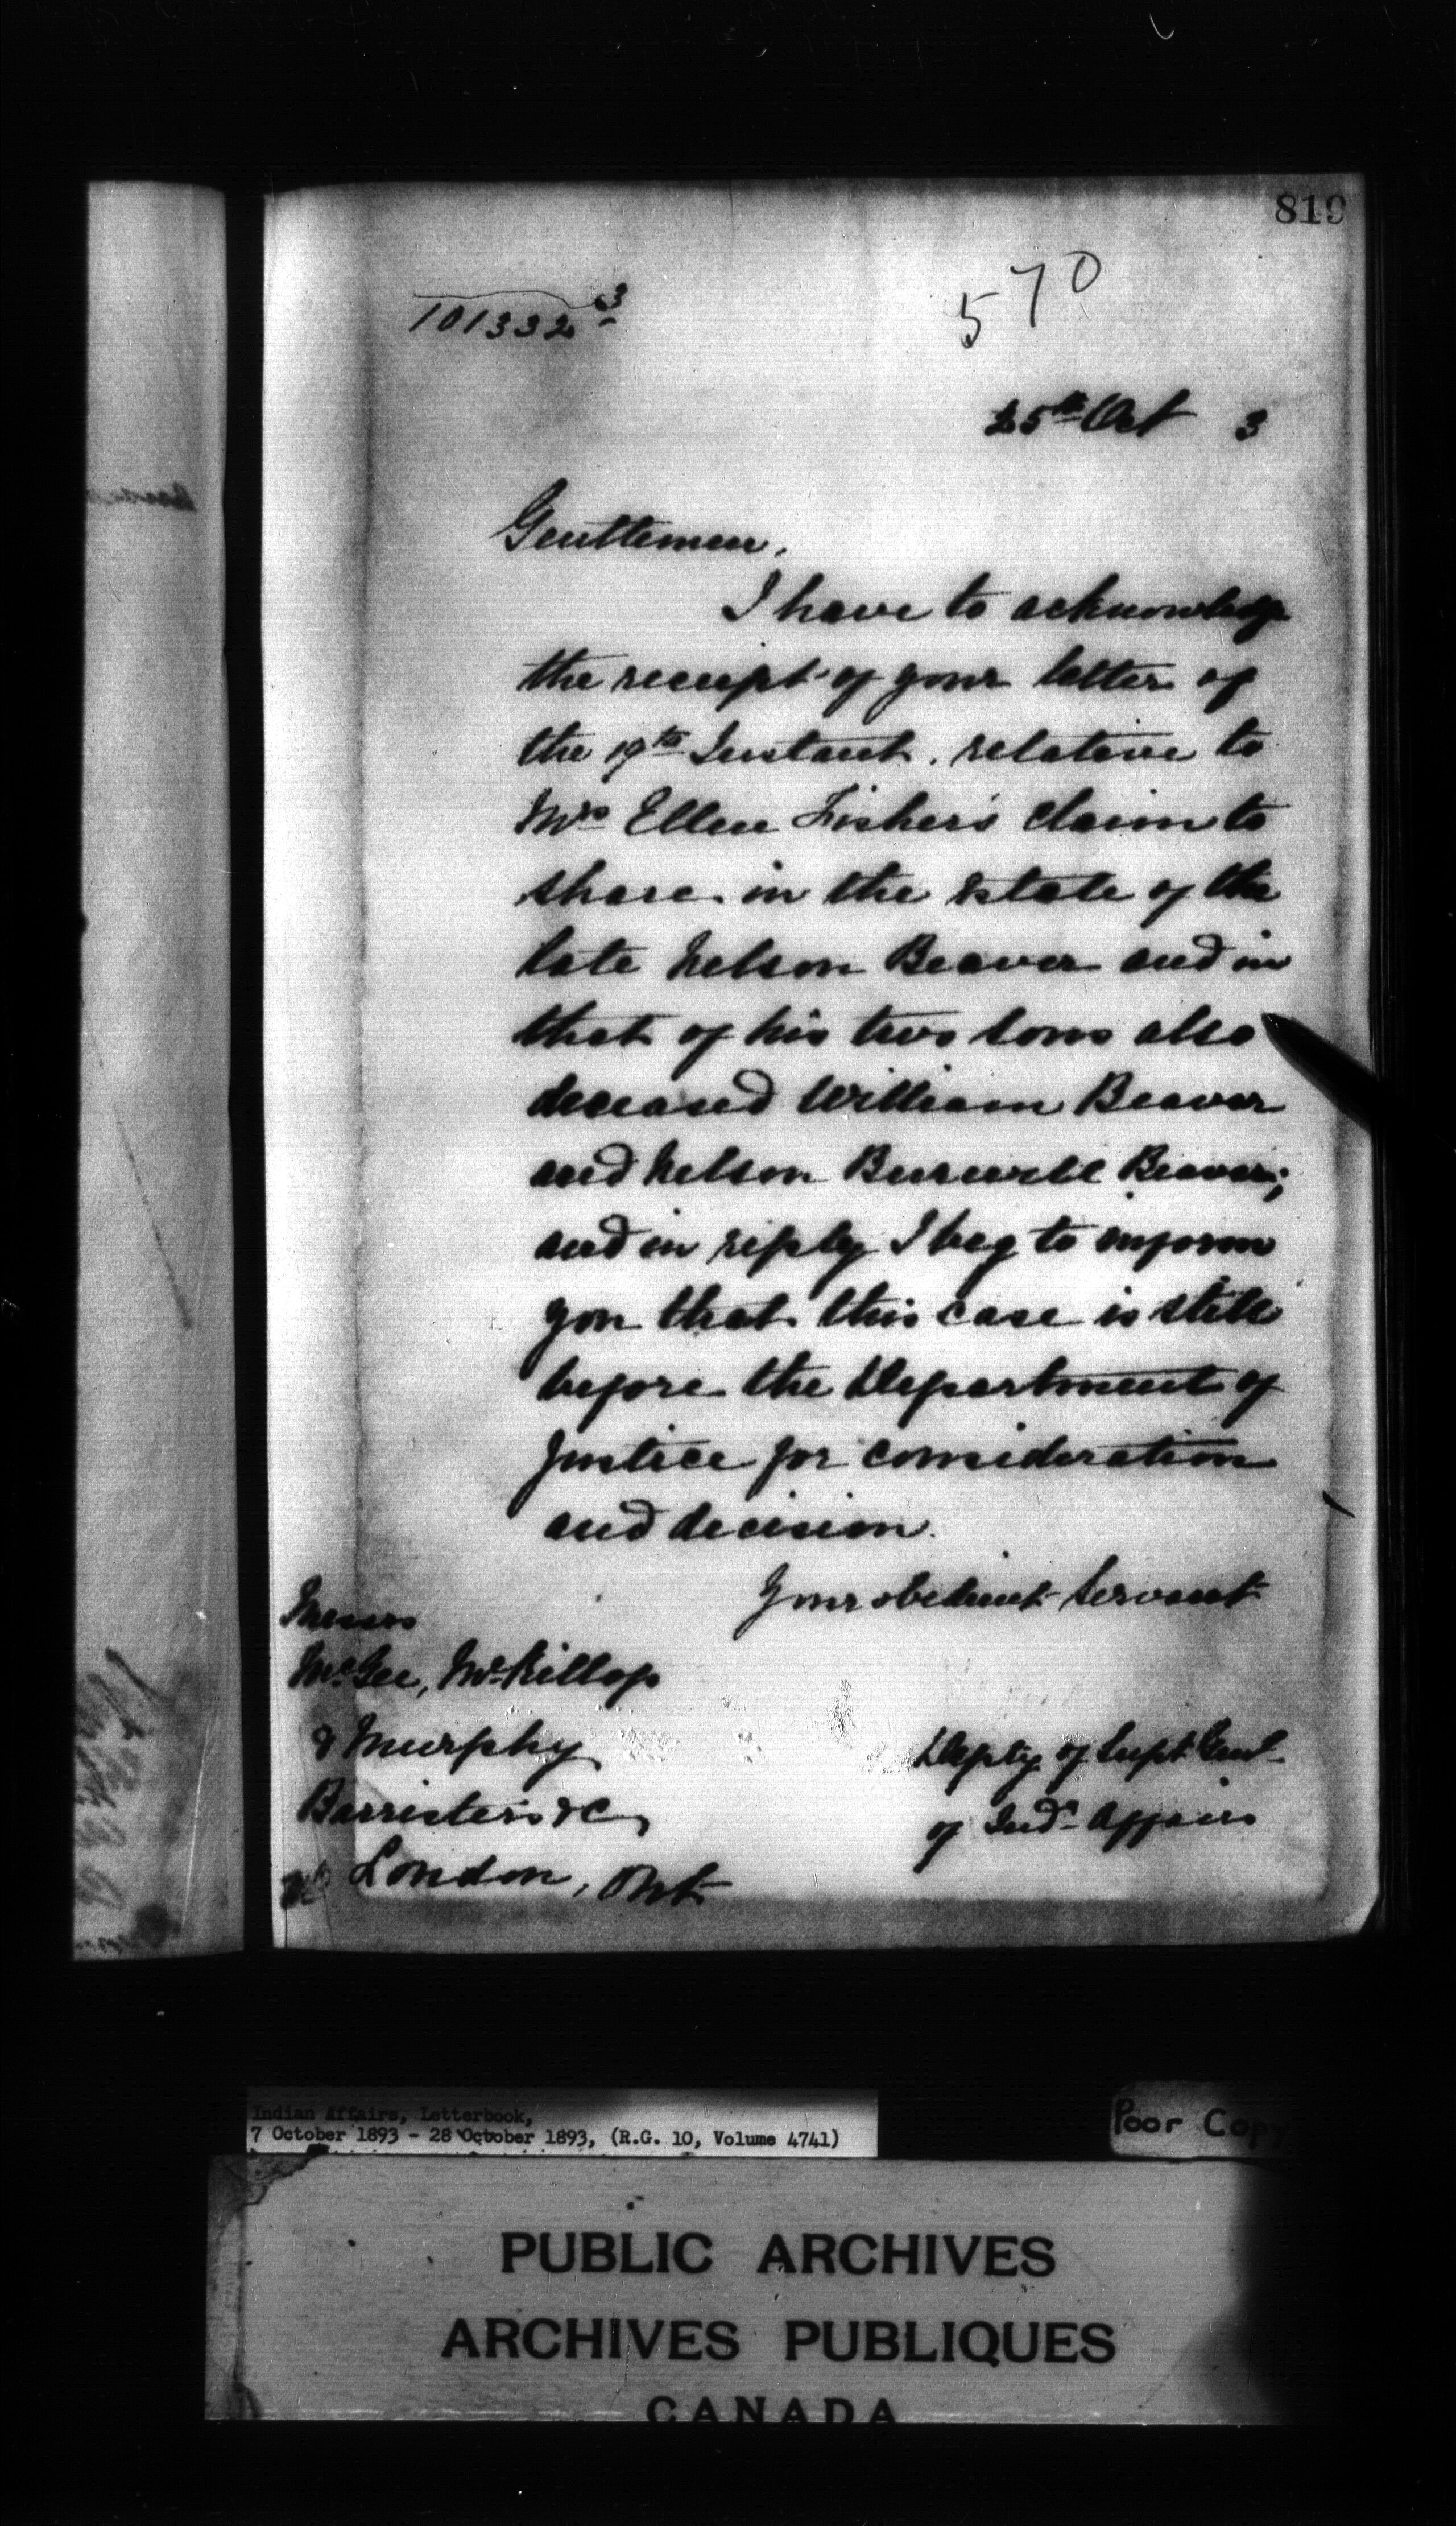 819
101332 3
570
25th Oct 3
Gentlemen,
I have to acknowledge
the receipt of your letter of
the 19th Instant, relative to
Mrs Ellen Fisher's claim to
share in the estate of the
late Nelson Beaver and in
that of his two sons also
deceased William Beaver
and Nelson Burwell Beaver;
and in reply I beg to inform
you that this case is still
before the Department of
Justice for consideration
and decision.
Your obedient Servant
Messrs
McGee, McKillop
& Murphy
Barristers &c,
London, Ont
Depty of Supt Genl
of Indn Affairs
Indian Affairs, Letterbook,
7 October 1893 - 28 October 1893, (R.G. 10, Volume 4741)
Poor Copy
PUBLIC ARCHIVES
ARCHIVES PUBLIQUES
CANADA